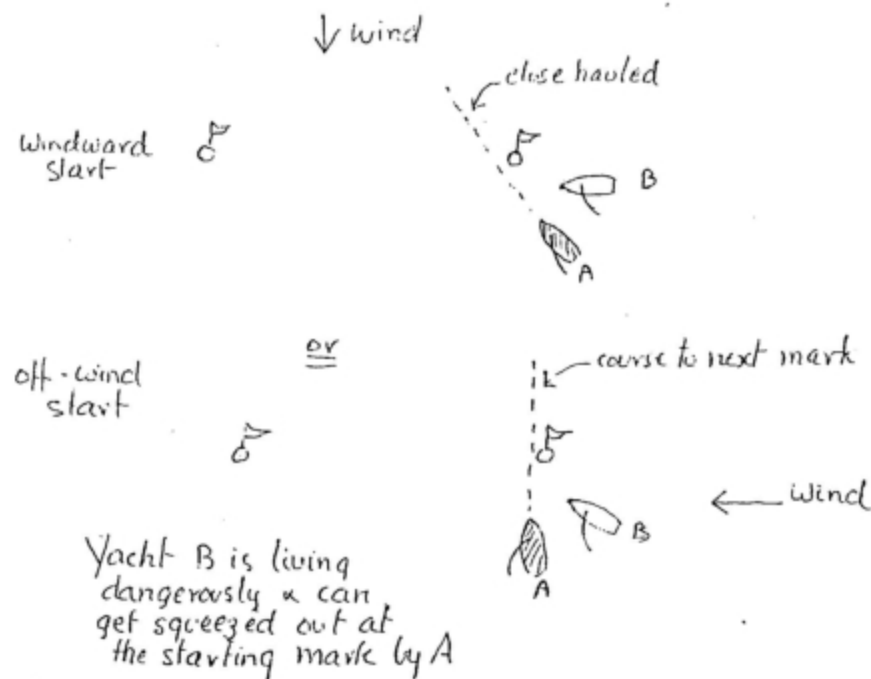 wind
close hauled
windward
start
B
A
or
off-wind
start
course to next mark
wind
B
A
Yacht B is living
dangerously & can
get squeezed out at
the starting mark by A